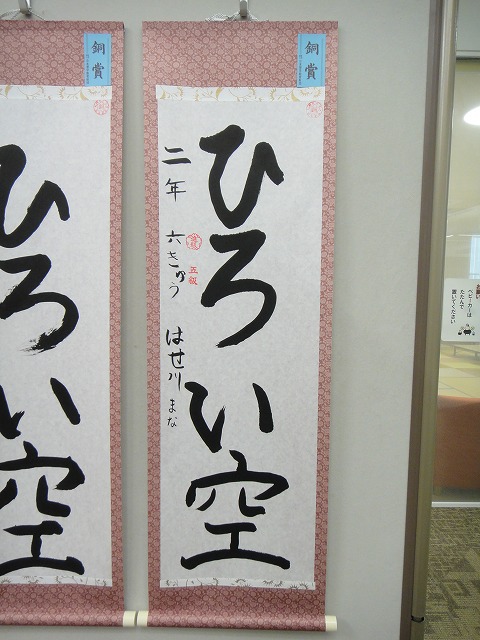 銅賞
ひろい空
二年 六きゅう はせ川 まな
五級
銅賞
ひろい空
お願い
ベビーカーは
たたんで
置いてください